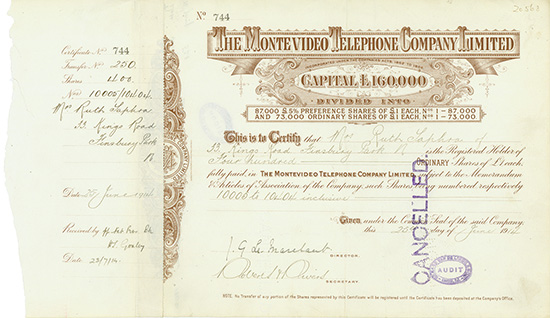 Nº 744
Certificate Nº 744
Transfer Nº 250
Shares 400
Nos 10005/10404
Mrs Ruth
33 Kings Road
Finsbury Park
N.
Date 25 June 1914
Received by
Date 23/7/14
THE MONTEVIDEO TELEPHONE COMPANY LIMITED
INCORPORATED UNDER THE COMPANIES ACTS, 1862 TO
CAPITAL £160,000
DIVIDED INTO
87,000 £5% PREFERENCE SHARES OF £1 EACH, Nos 1-87,000
AND 73,000 ORDINARY SHARES OF £1 EACH, Nos 1-73,000
This is to Certify that Mrs Ruth of
33 Kings Road Finsbury Park N. is the Registered Holder of
Four hundred Ordinary Shares of £1 each,
fully paid in THE MONTEVIDEO TELEPHONE COMPANY LIMITED subject to the Memorandum
& Articles of Association of the Company, such Shares being numbered respectively
to inclusive
Given, under the Common Seal of the said Company,
this 25th day of June 1914
DIRECTOR.
SECRETARY.
CANCELLED
AUDIT
NOTE. No Transfer of any portion of the Shares represented by this Certificate will be registered until the Certificate has been deposited at the Company's Office.